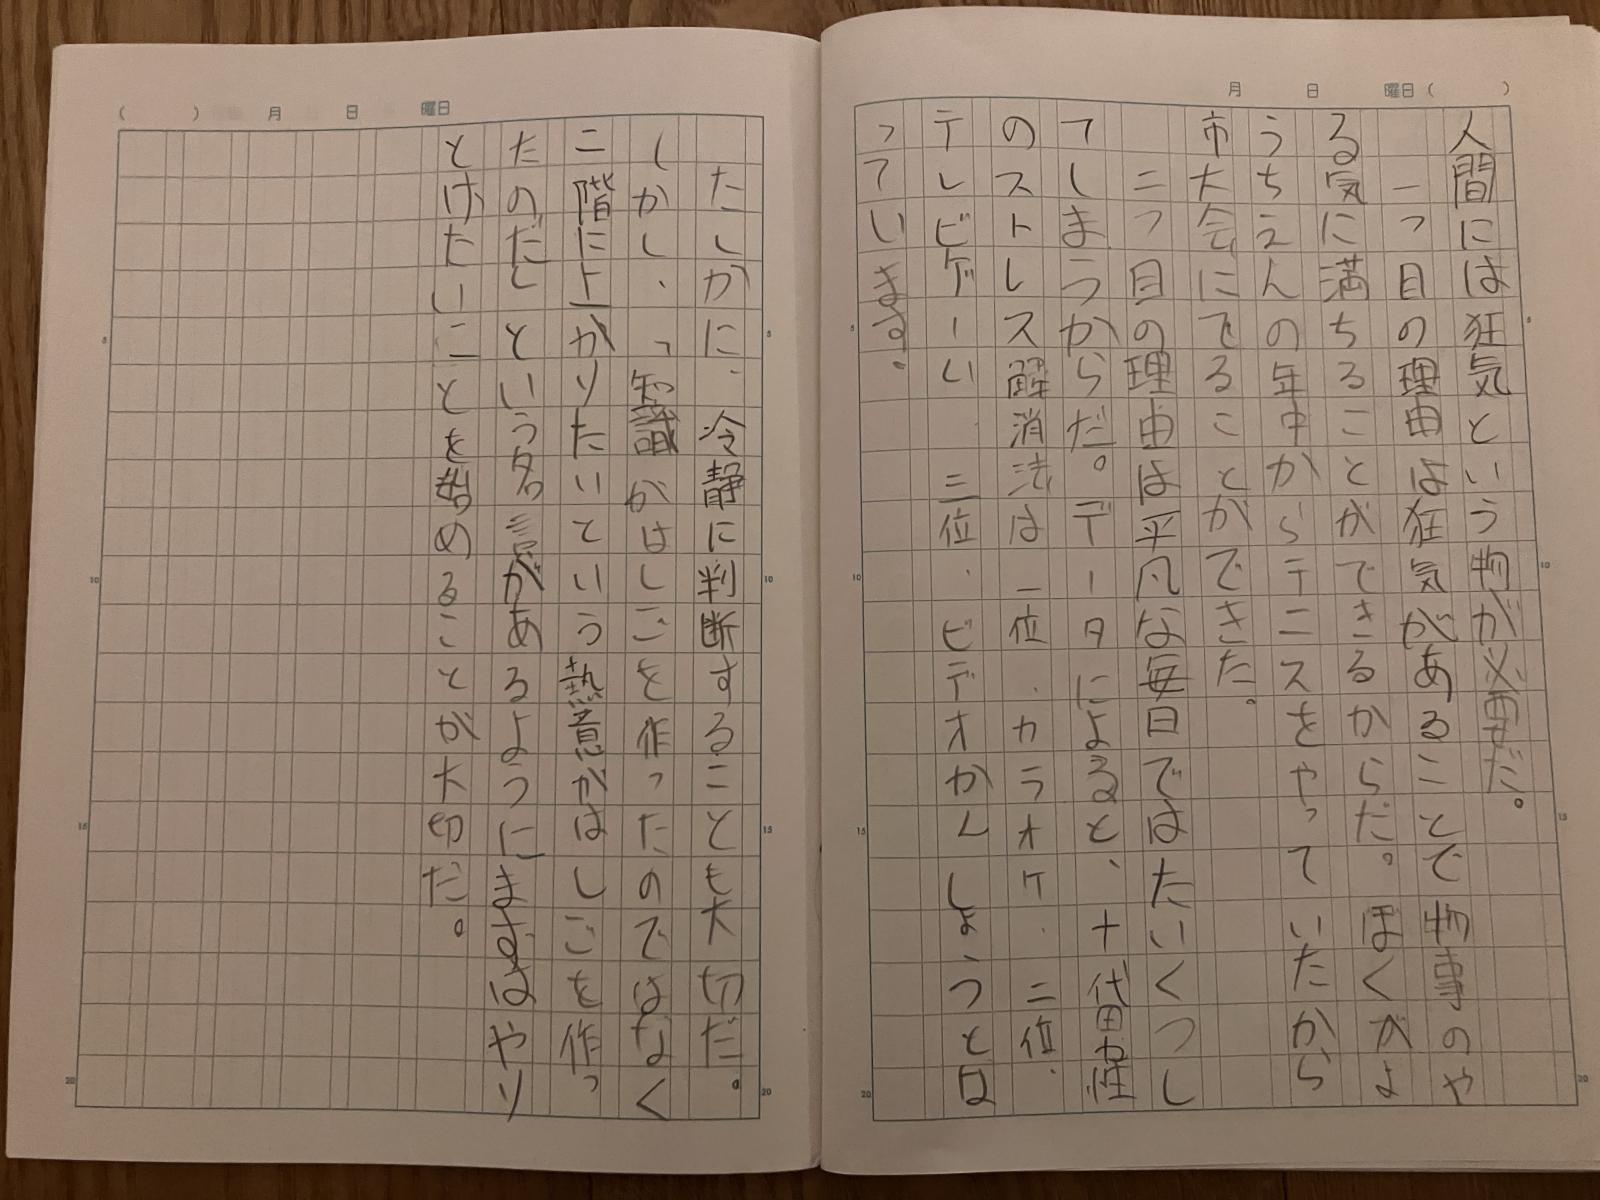 月 日 曜日( )
人間には狂気という物が必要だ。
一つ目の理由は狂気があることで物事のや
る気に満ちることができるからだ。ぼくがよ
うちえんの年中からテニスをやっていたから
市大会にでることができた。
二つ目の理由は平凡な毎日ではたいくつし
てしまうからだ。データによると、十代男性
のストレス解消法は一位、カラオケ、二位、
テレビゲーム 三位、ビデオかんしょうと口
っています。
( ) 月 日 曜日
たしかに、冷静に判断することも大切だ。
しかし、「知識がはしごを作ったのではなく
二階に上がりたいという熱意がはしごを作っ
たのだ」という名言があるようにまずはやり
とげたいことを始めることが大切だ。
5
10
15
20
5
10
15
20
5
10
15
20
5
10
15
20